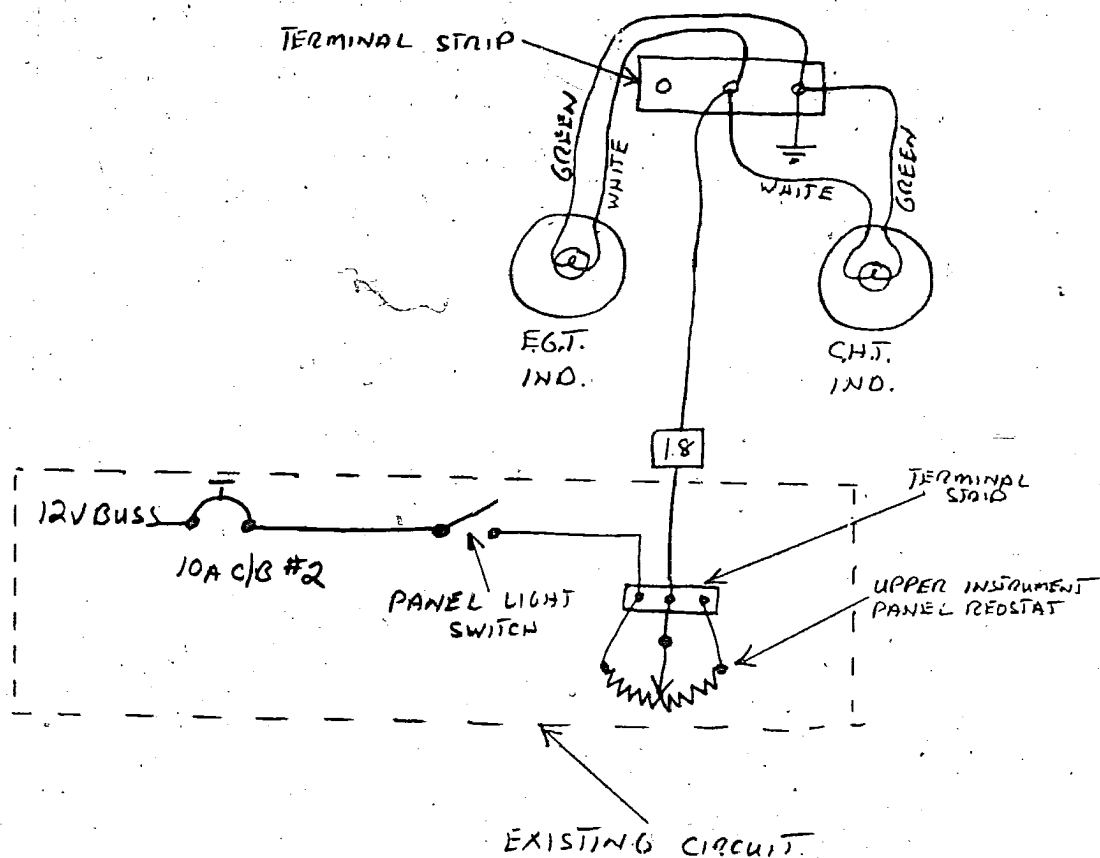 TERMINAL STRIP
GREEN
WHITE
WHITE
GREEN
E.G.T.
IND.
C.H.T.
IND.
1.8
TERMINAL
STRIP
12V BUSS
10A C/B #2
PANEL LIGHT
SWITCH
UPPER INSTRUMENT
PANEL REOSTAT
EXISTING CIRCUIT.